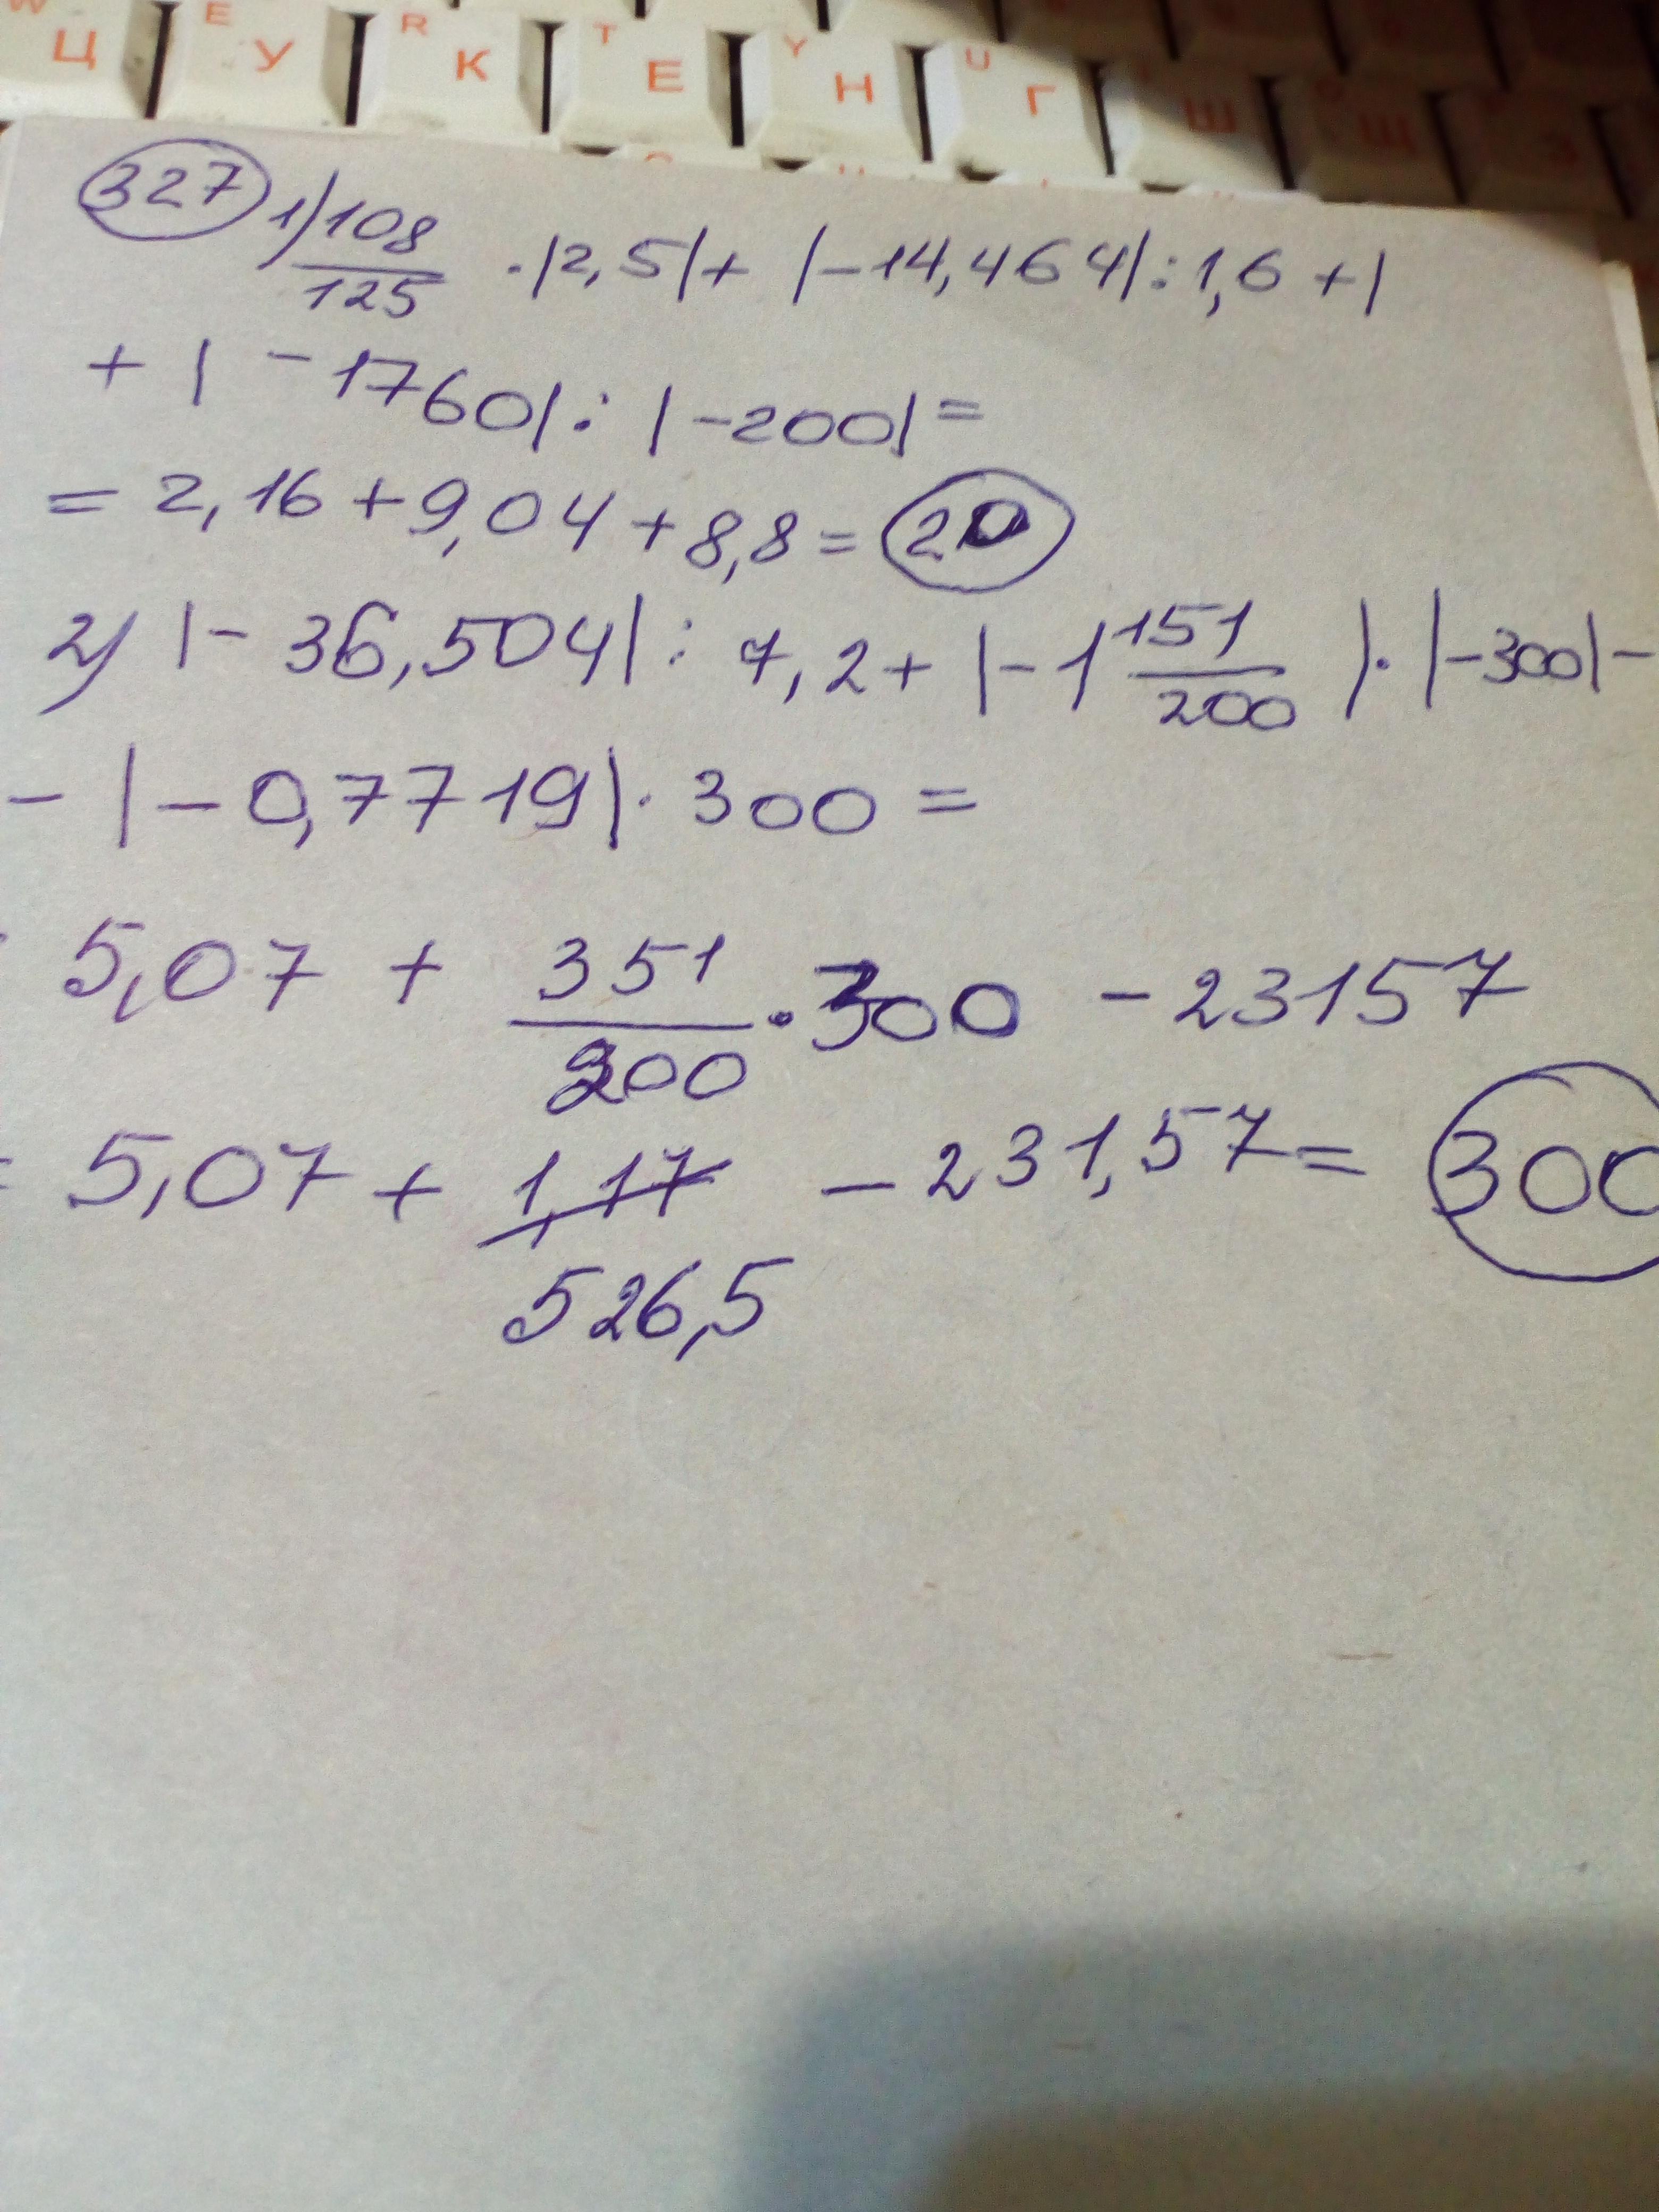 W E R T Y U
Ц У К Е Н Г Ш Щ З
327 1) 108/125 · |2,5| + |-14,464| : 1,6 + |
+ | - 1760| : |-200| =
= 2,16 + 9,04 + 8,8 = 20
2) |- 36,504| : 7,2 + |-1 151/200| · |-300| -
- |- 0,7719| · 300 =
5,07 + 351/200 · 300 - 23157
= 5,07 + 1,17 - 231,57 = 300
526,5